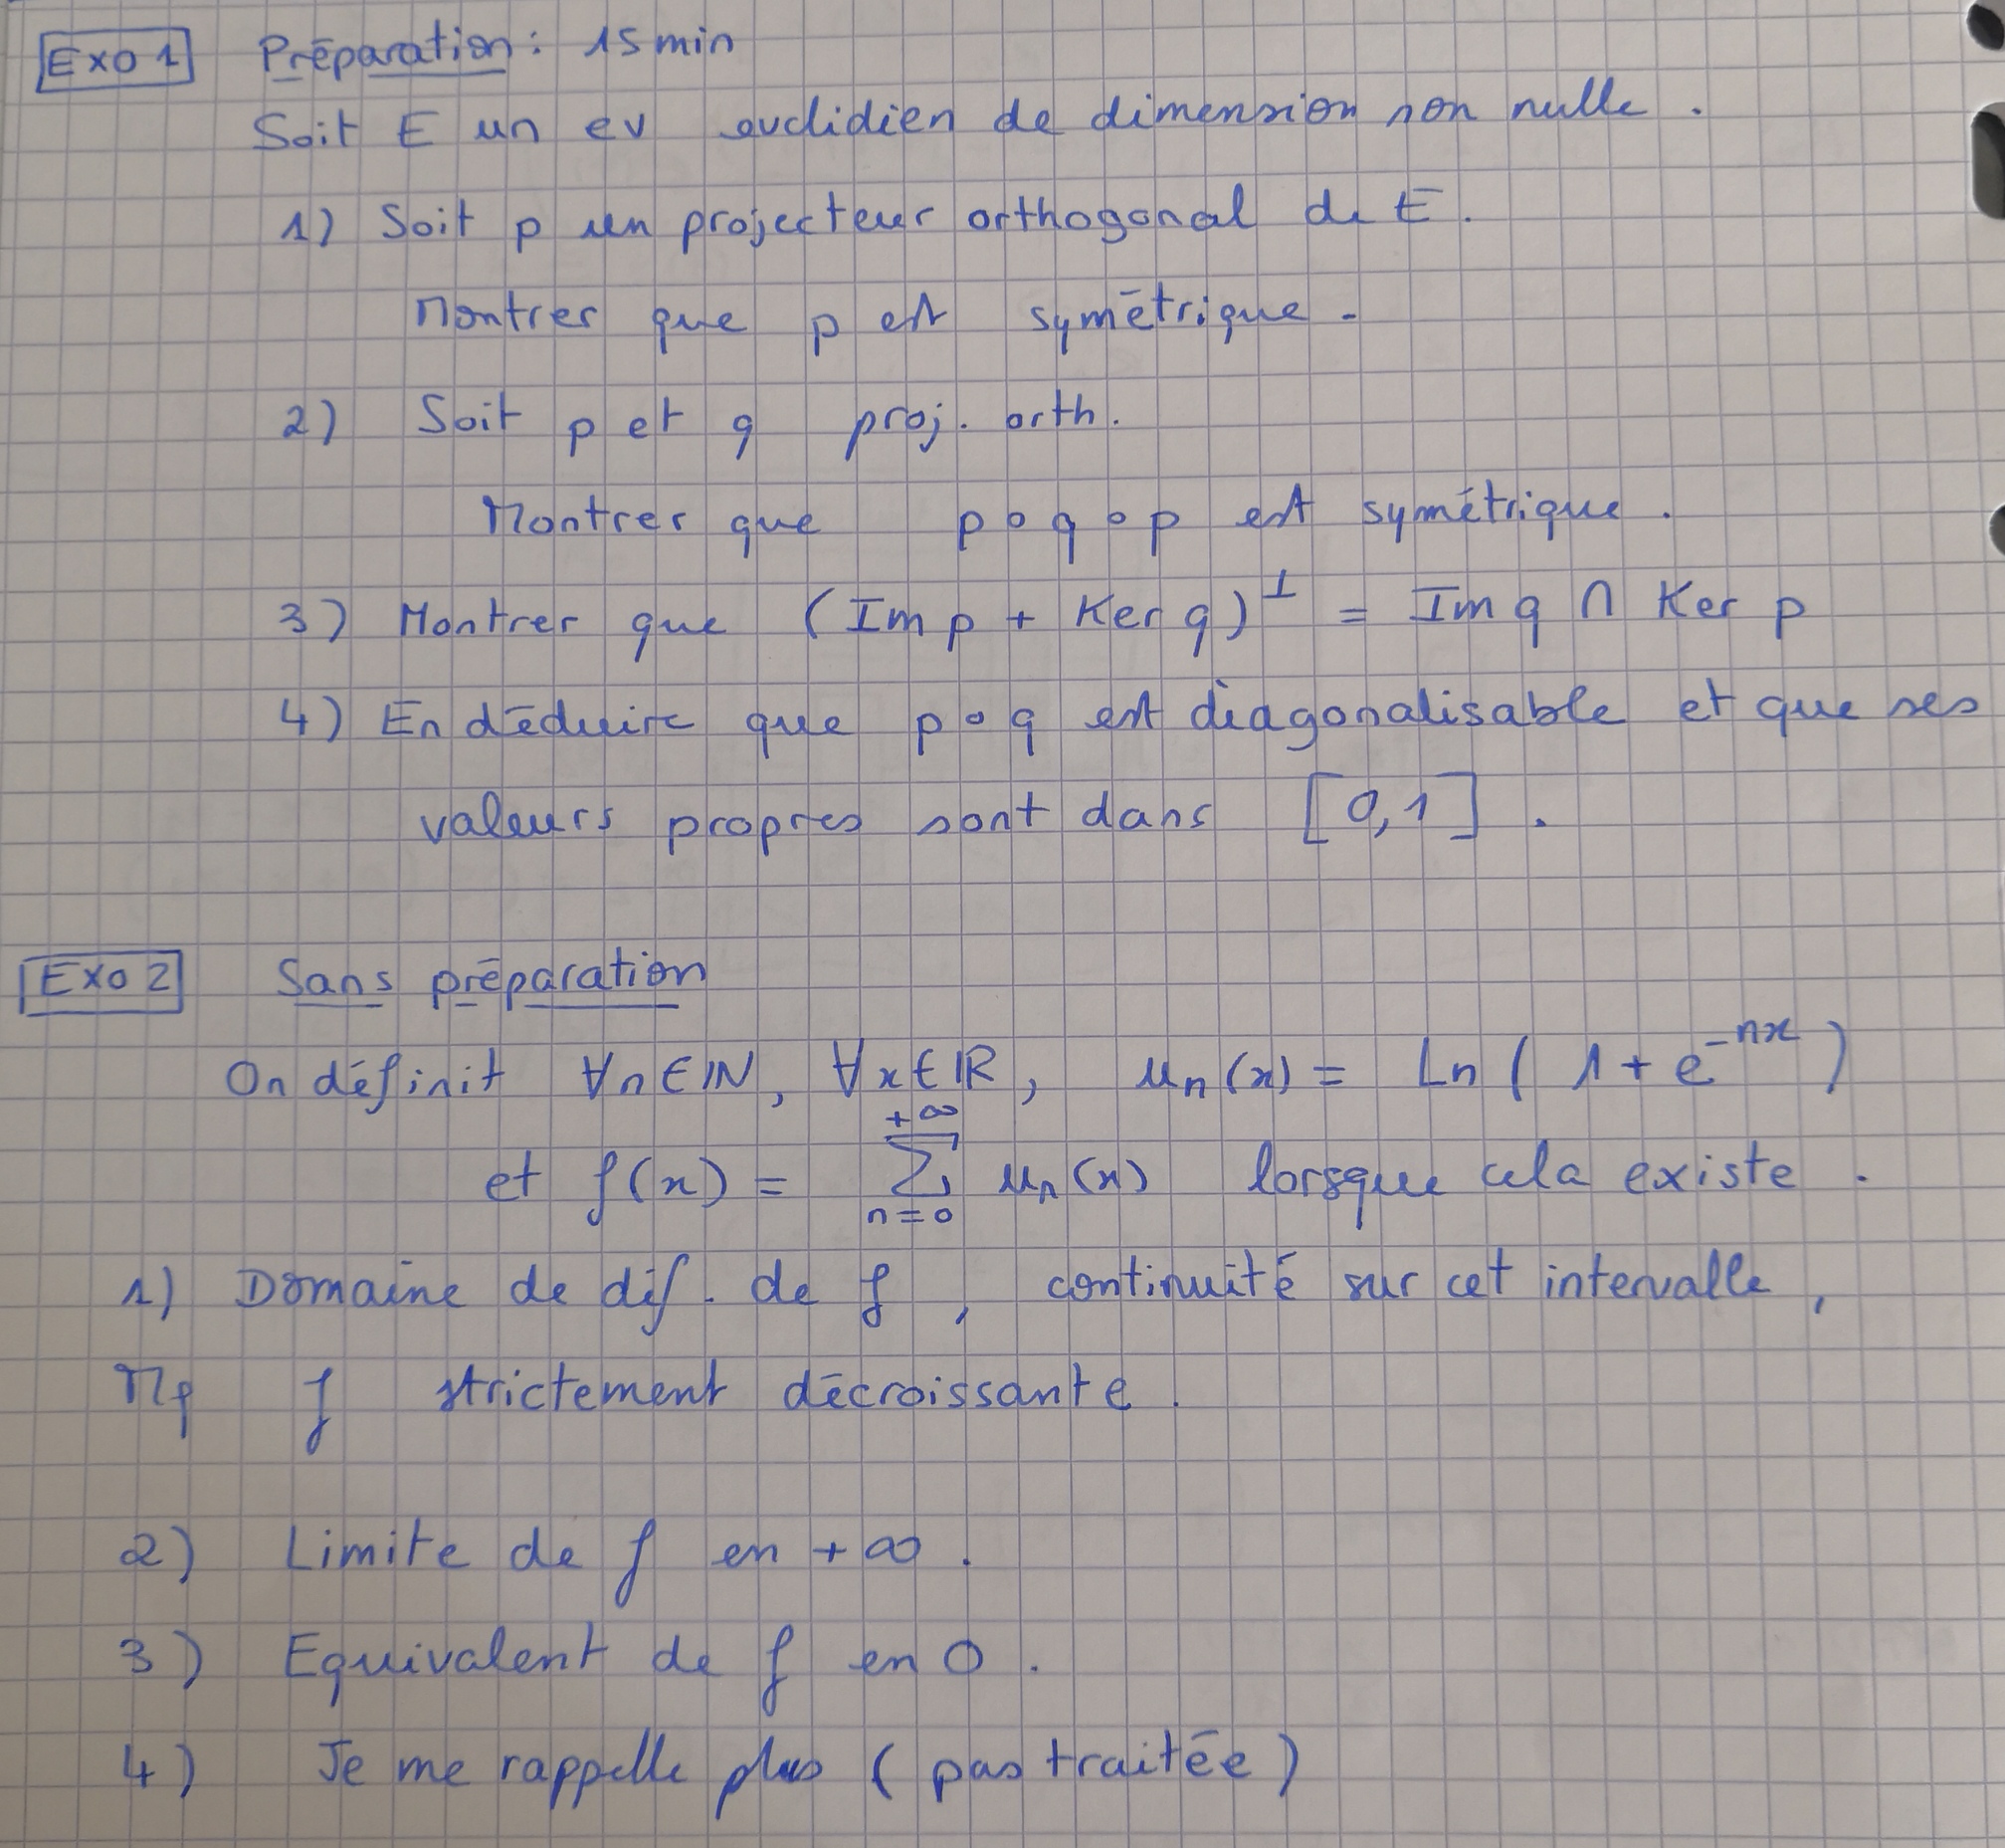 Exo 1 Préparation : 15 min
Soit E un ev euclidien de dimension non nulle .
1) Soit p un projecteur orthogonal de E .
Montrer que p est symétrique .
2) Soit p et q proj. orth.
Montrer que p ∘ q ∘ p est symétrique .
3) Montrer que (Im p + Ker q)^⊥ = Im q ∩ Ker p
4) En déduire que p ∘ q est diagonalisable et que ses
valeurs propres sont dans [0,1] .
Exo 2 Sans préparation
On définit ∀n∈ℕ, ∀x∈ℝ, u_n(x) = Ln ( 1 + e^{-nx} )
et f(x) = \sum_{n=0}^{+∞} u_n(x) lorsque cela existe .
1) Domaine de déf. de f , continuité sur cet intervalle ,
Mq f strictement décroissante .
2) Limite de f en +∞ .
3) Equivalent de f en 0 .
4) Je me rappelle plus ( pas traitée )